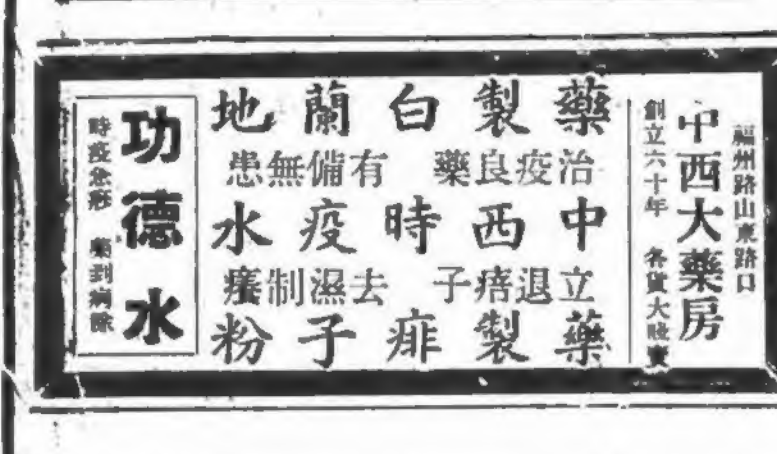 福州路山東路口
中西大藥房
創立六十年　各貨大賤賣
藥製白蘭地
治疫良藥　有備無患
中西時疫水
立退痦子　去濕制癢
藥製痱子粉
功德水
時疫急痧　藥到病除